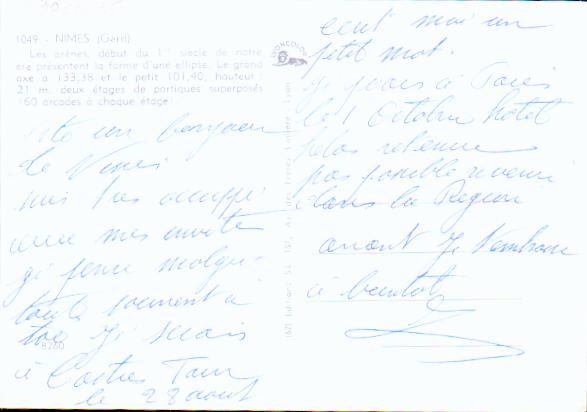 1049 - NIMES (Gard)
Les arènes, début du 1er siècle de notre
ère présentent la forme d'une ellipse. Le grand
axe a 133,38 et le petit 101,40, hauteur :
21 m. deux étages de portiques superposés
60 arcades à chaque étage!
LYONCOLOR
un bonjour
de Nimes
suis très occuppé
avec mes
je pense malgré
toute souvent à
toi je serais
à Castres Tarn
le 28 aout
8260
1621 Editions S.L.
Lyon
ecrit moi un
petit mot.
je vais à Paris
le 1 Octobre hotel
pas possible revenir
dans la Region
avant je t'embrasse
à bientot